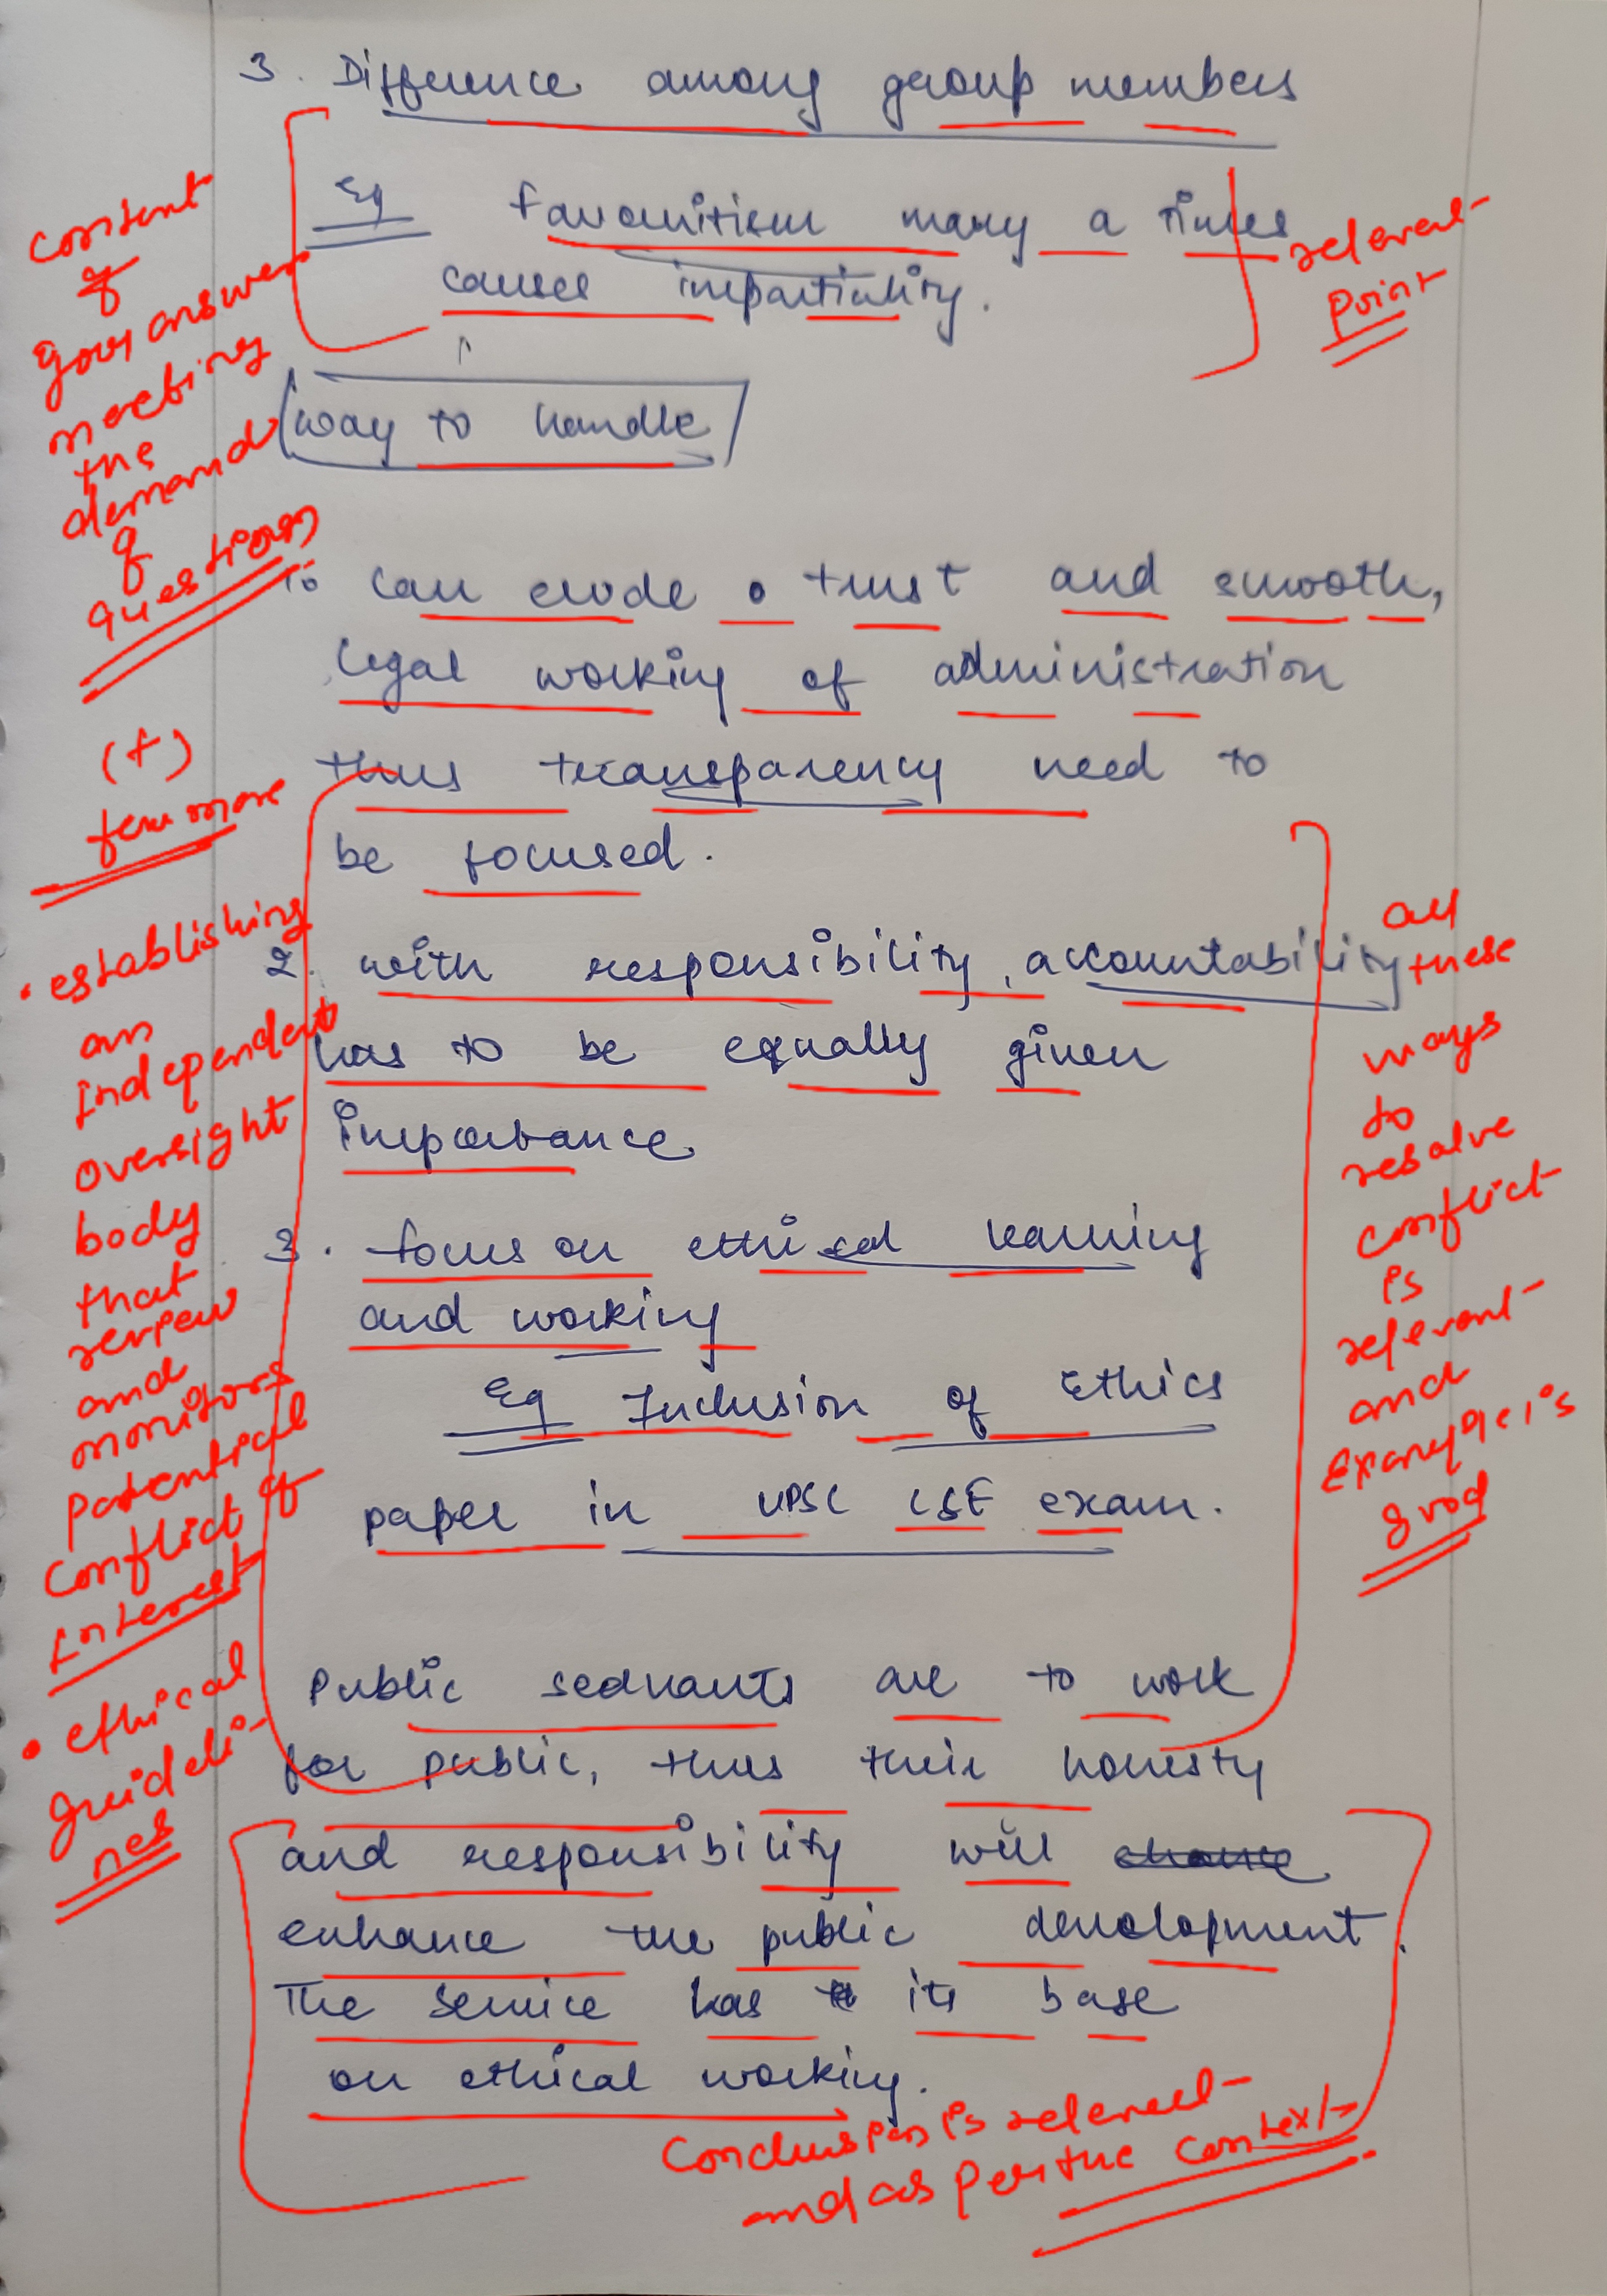 3. Difference among group members
Eg favouritism many a times
causes impartiality.
way to handle
1. can erode trust and smooth,
legal working of administration
thus transparency need to
be focused.
2. with responsibility, accountability
has to be equally given
importance
3. focus on ethical learning
and working
Eg Inclusion of Ethics
paper in UPSC CSE exam.
Public servants are to work
for public, thus their honesty
and responsibility will
enhance the public development.
The service has its base
on ethical working.
content
of
your answer
meeting
the
demand
of
question
(+)
few more
• establishing
an
independent
oversight
body
that
review
and
monitors
potential
conflict of
interest
• ethical
guideli-
nes
relevant
point
all
these
ways
to
resolve
conflict
is
relevant
and
Example is
good
Conclusion is relevant
and as per the context